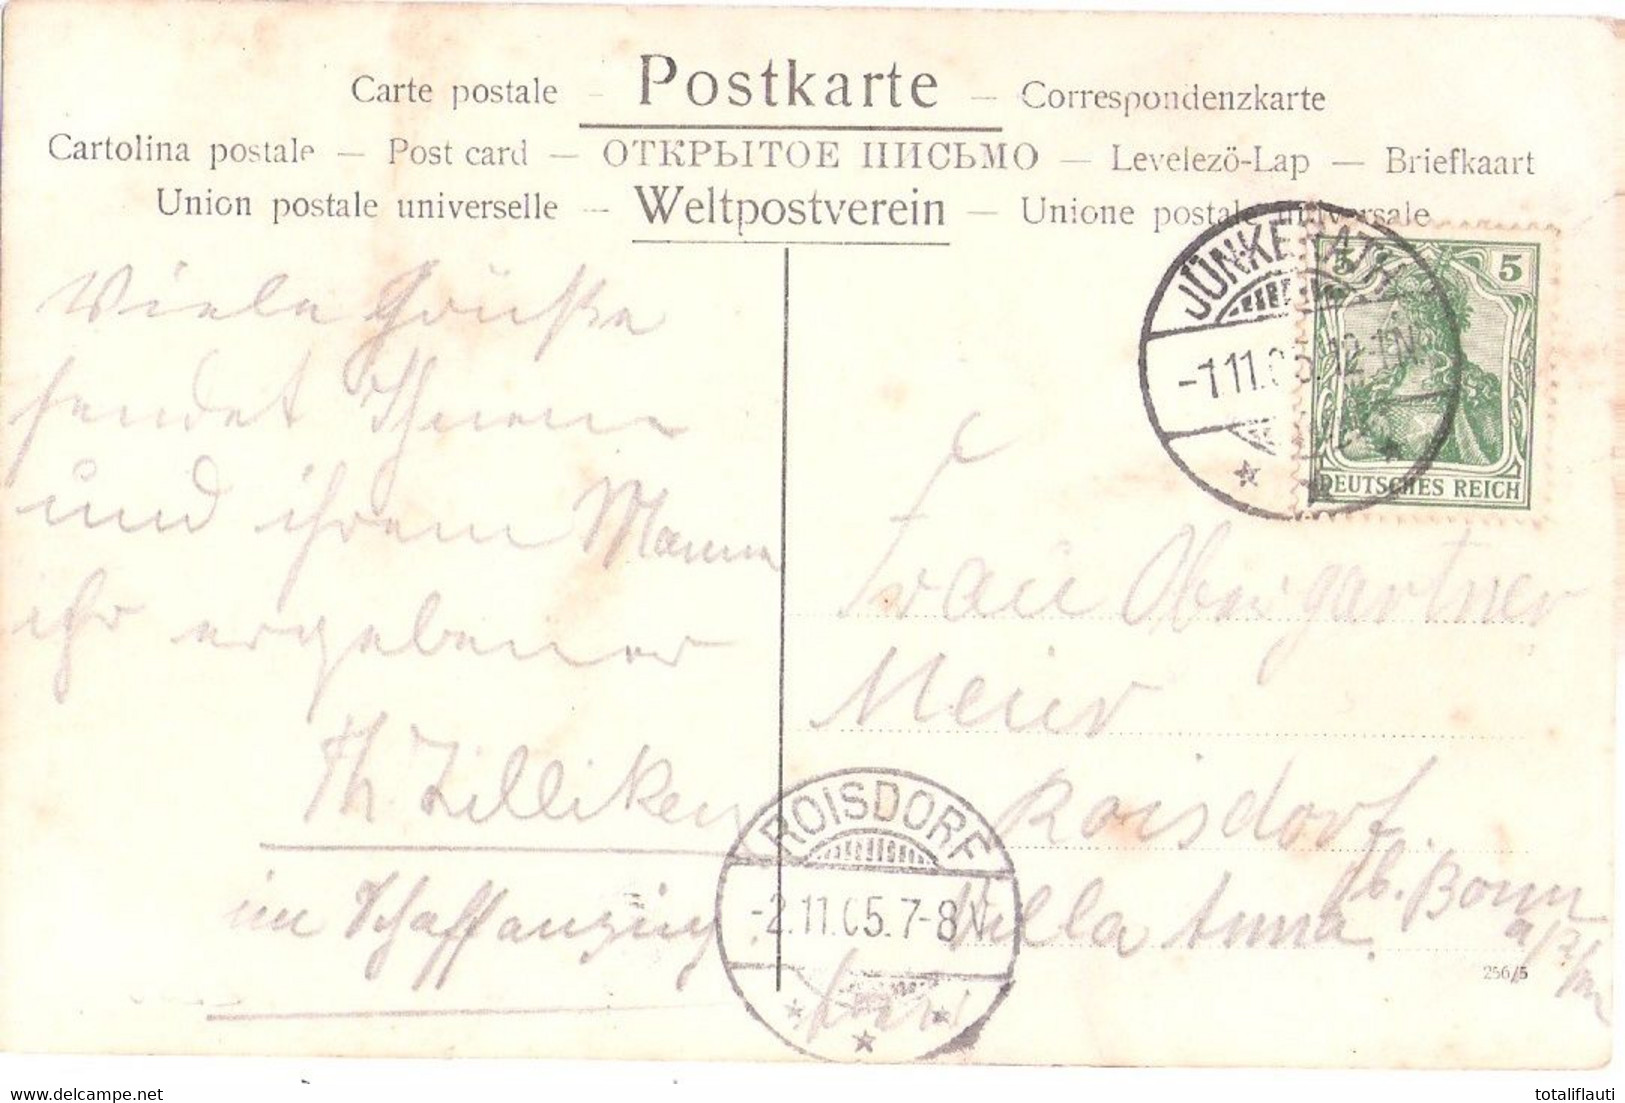 Carte postale – Postkarte – Correspondenzkarte
Cartolina postale – Post card – ОТКРЫТОЕ ПИСЬМО – Levelezö-Lap – Briefkaart
Union postale universelle – Weltpostverein – Unione postale universale
JÜNKERATH
-1.11.05.12-1N.
5 5
DEUTSCHES REICH
Viele Grüße
sendet Ihnen
und ihrem Mann
ihr ergebener
Th. Zilliken
im
Frau Obergärtner
Meier
Roisdorf
b. Bonn
a/Rh
Villa Anna
ROISDORF
-2.11.05.7-8N
256/5
HipPostcard.com
totaliflauti